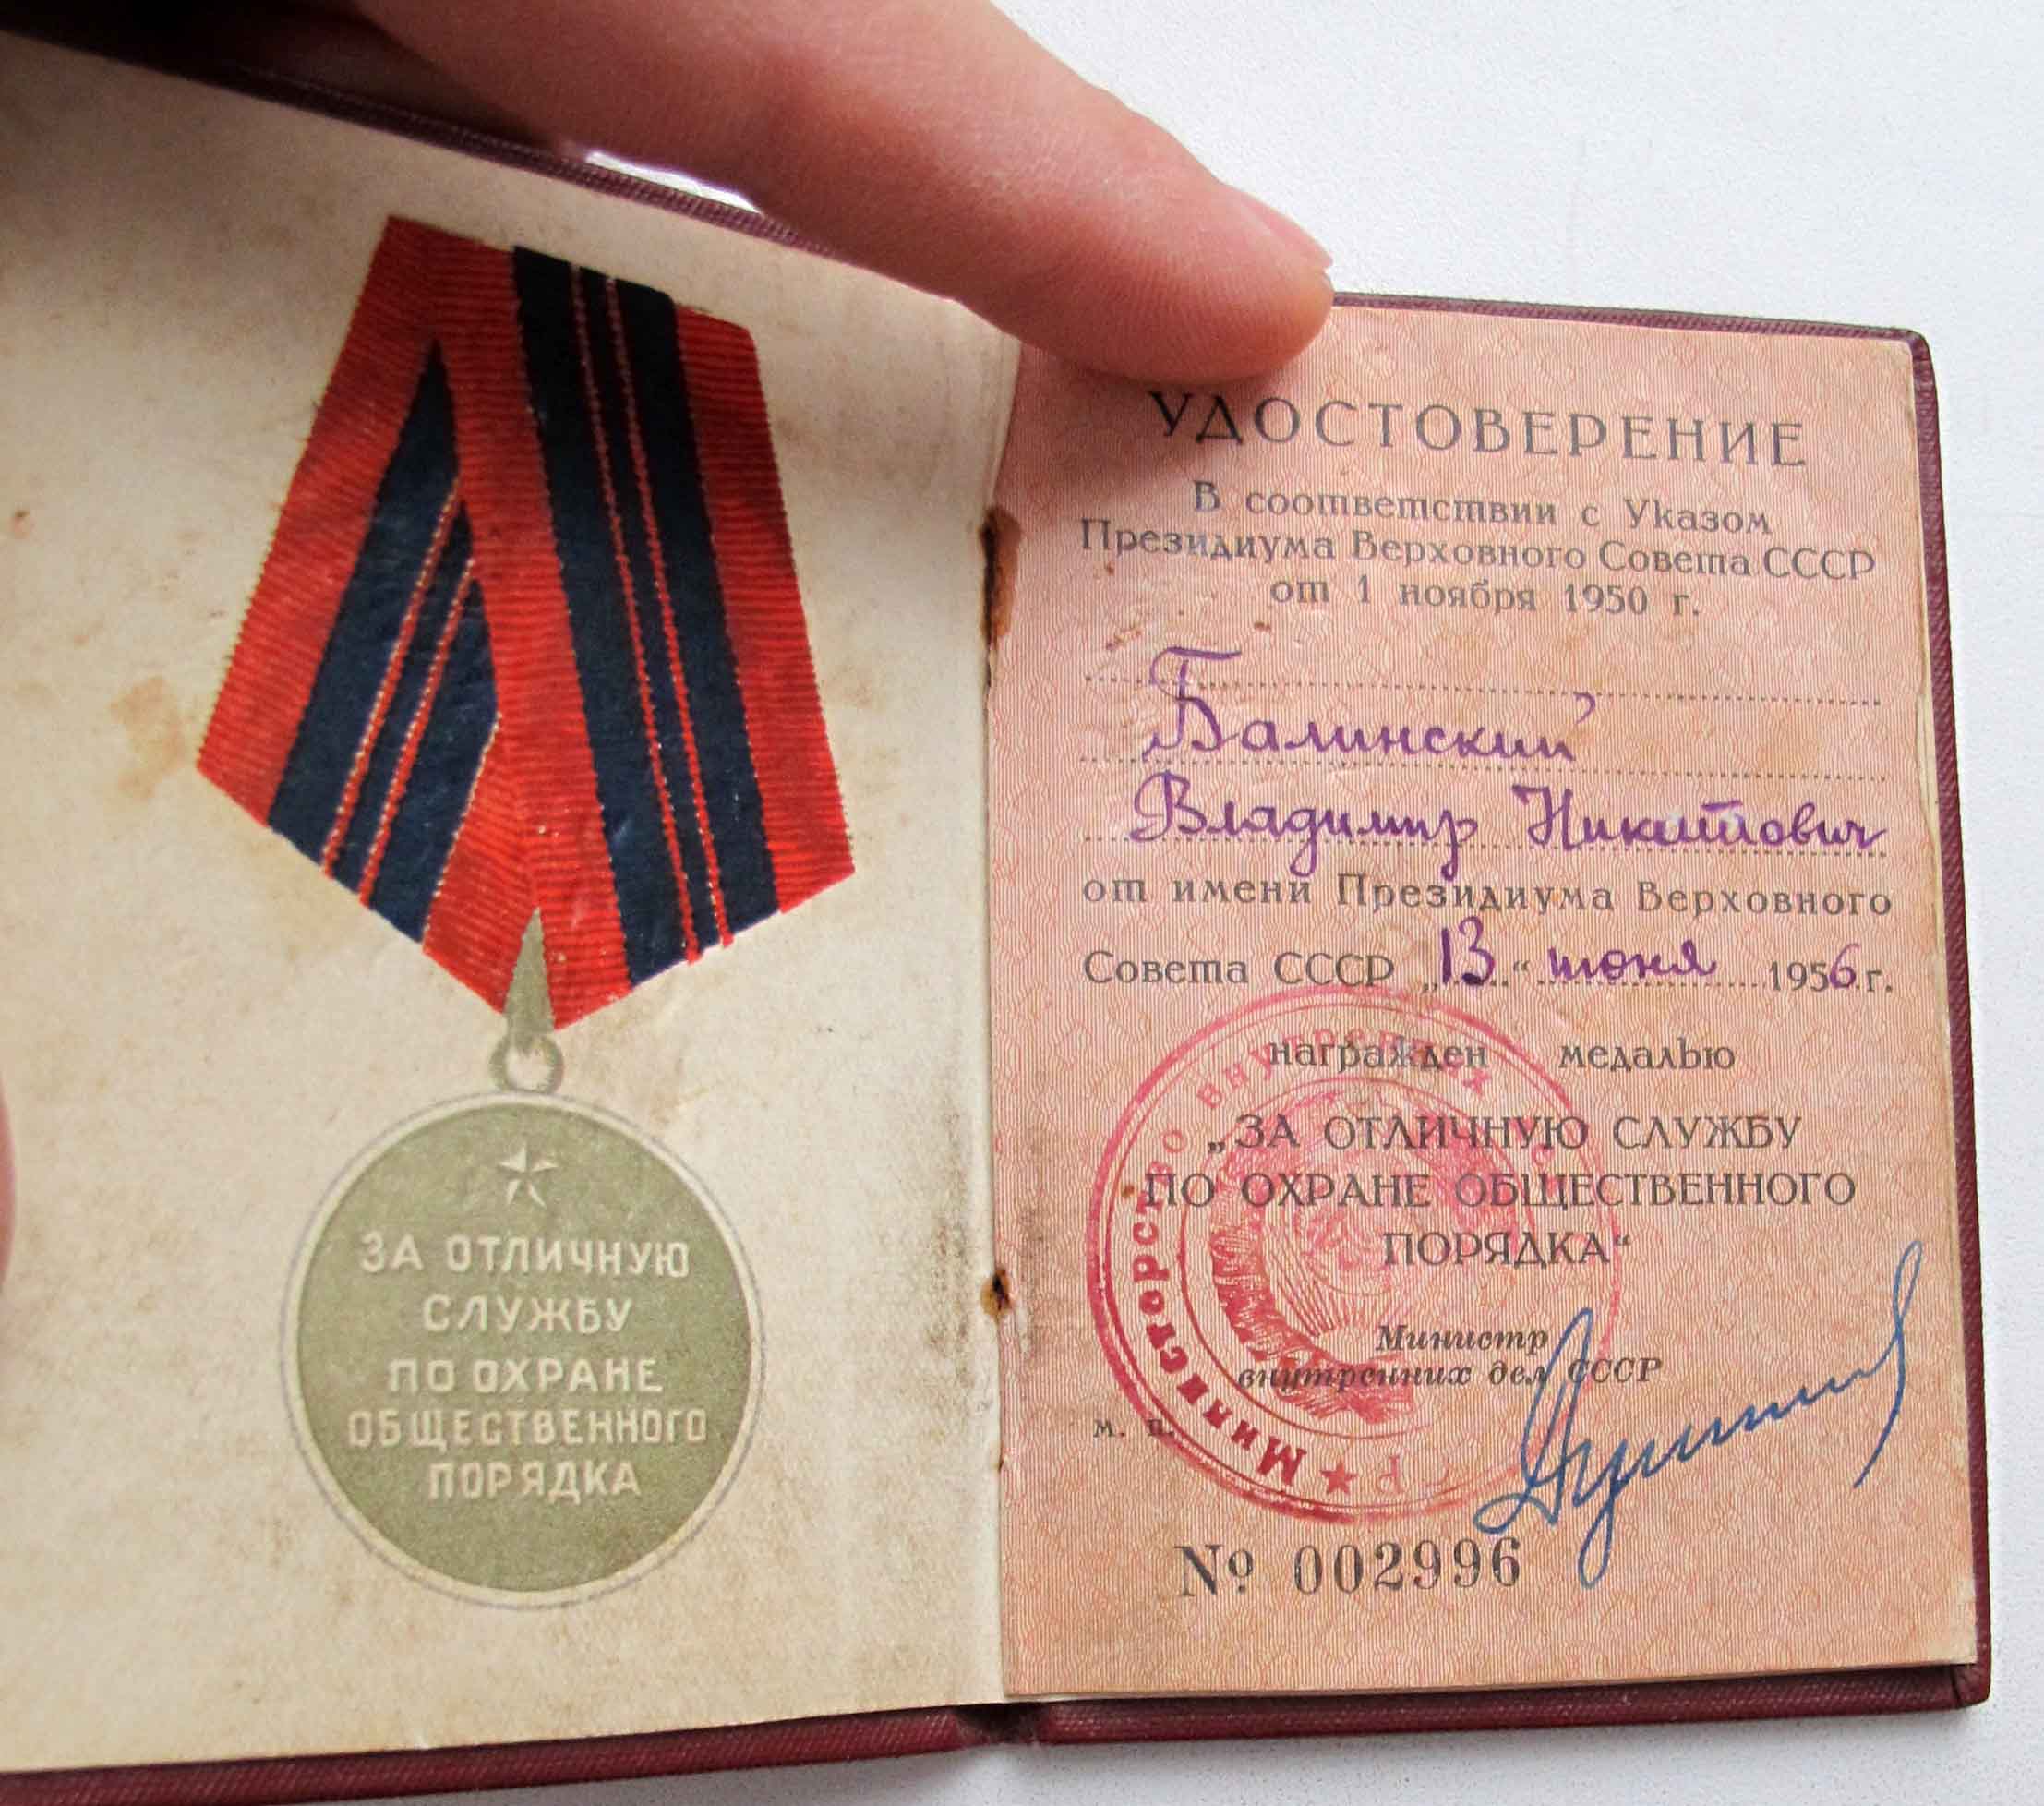 ЗА ОТЛИЧНУЮ
СЛУЖБУ
ПО ОХРАНЕ
ОБЩЕСТВЕННОГО
ПОРЯДКА
УДОСТОВЕРЕНИЕ
В соответствии с Указом
Президиума Верховного Совета СССР
от 1 ноября 1950 г.
Балинский
Владимир Никитович
от имени Президиума Верховного
Совета СССР „13“ июня 1956 г.
награжден медалью
„ЗА ОТЛИЧНУЮ СЛУЖБУ
ПО ОХРАНЕ ОБЩЕСТВЕННОГО
ПОРЯДКА“
Министр
внутренних дел СССР
м. п.
Министерство внутренних
№ 002996